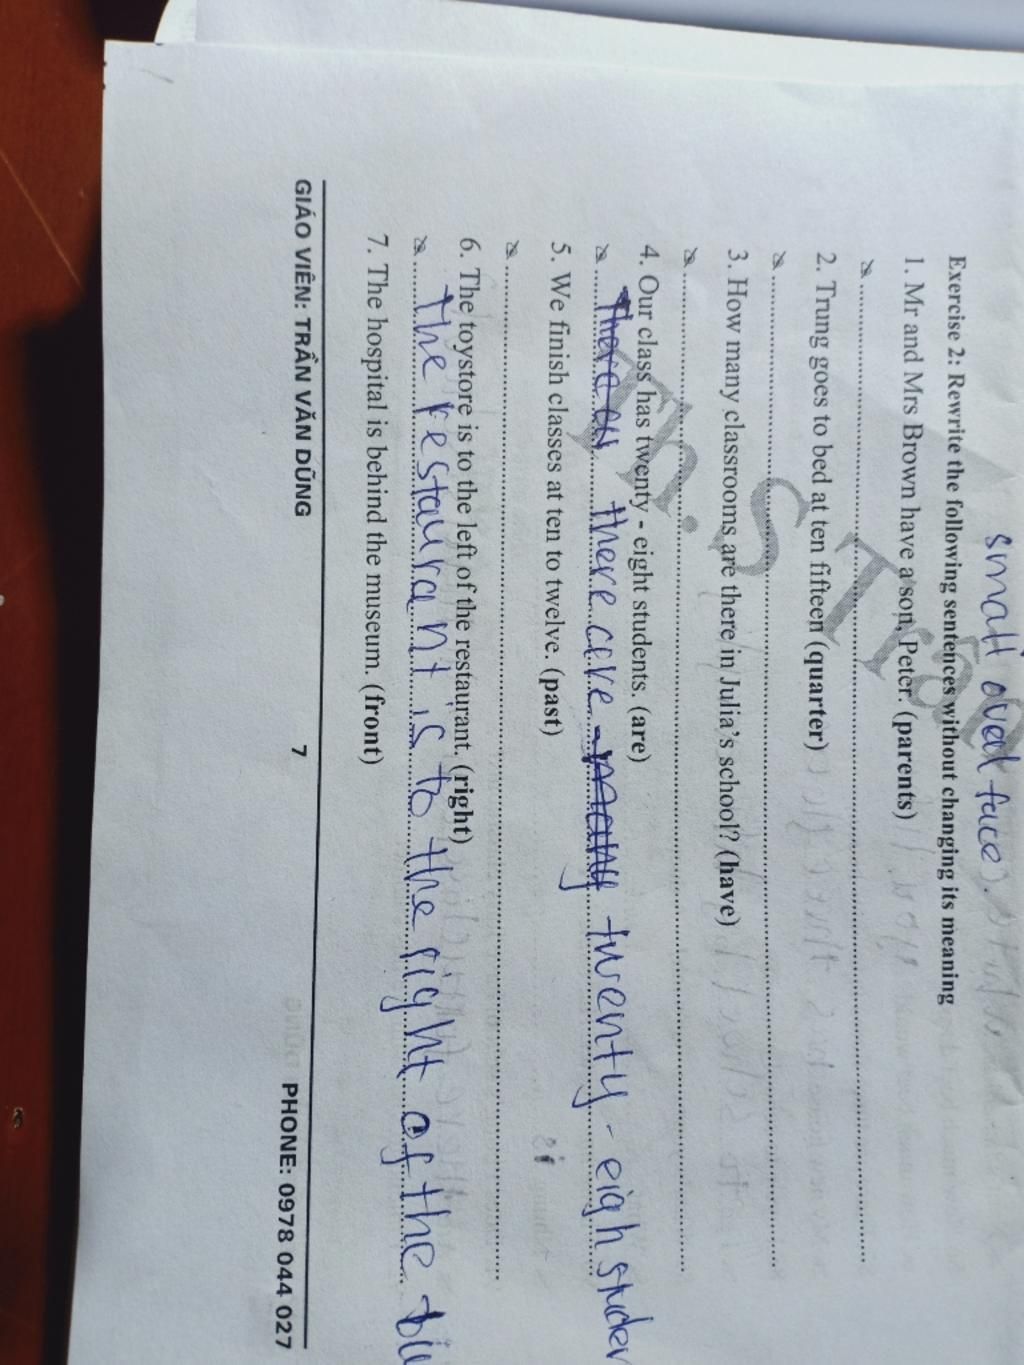 small oval face).
Exercise 2: Rewrite the following sentences without changing its meaning
1. Mr and Mrs Brown have a son, Peter. (parents)
2. Trung goes to bed at ten fifteen (quarter)
3. How many classrooms are there in Julia's school? (have)
4. Our class has twenty - eight students. (are)
there are twenty - eigh studen
5. We finish classes at ten to twelve. (past)
6. The toystore is to the left of the restaurant. (right)
the restaurant is to the right of the
7. The hospital is behind the museum. (front)
GIÁO VIÊN: TRẦN VĂN DŨNG 7 PHONE: 0978 044 027